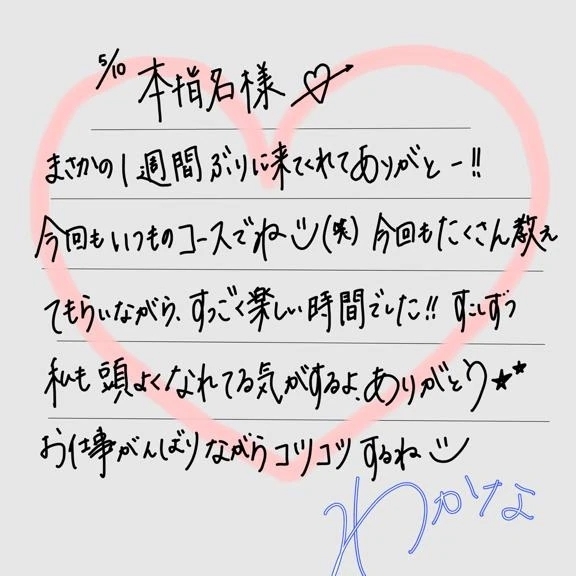 5/10 本指名様
まさかの1週間ぶりに来てくれてありがとー!!
今回もいつものコースでね(笑) 今回もたくさん教え
てもらいながら、すっごく楽しい時間でした!! すこしずつ
私も頭よくなれてる気がするよ、ありがとう★★
お仕事がんばりながらコツコツするね
わかな